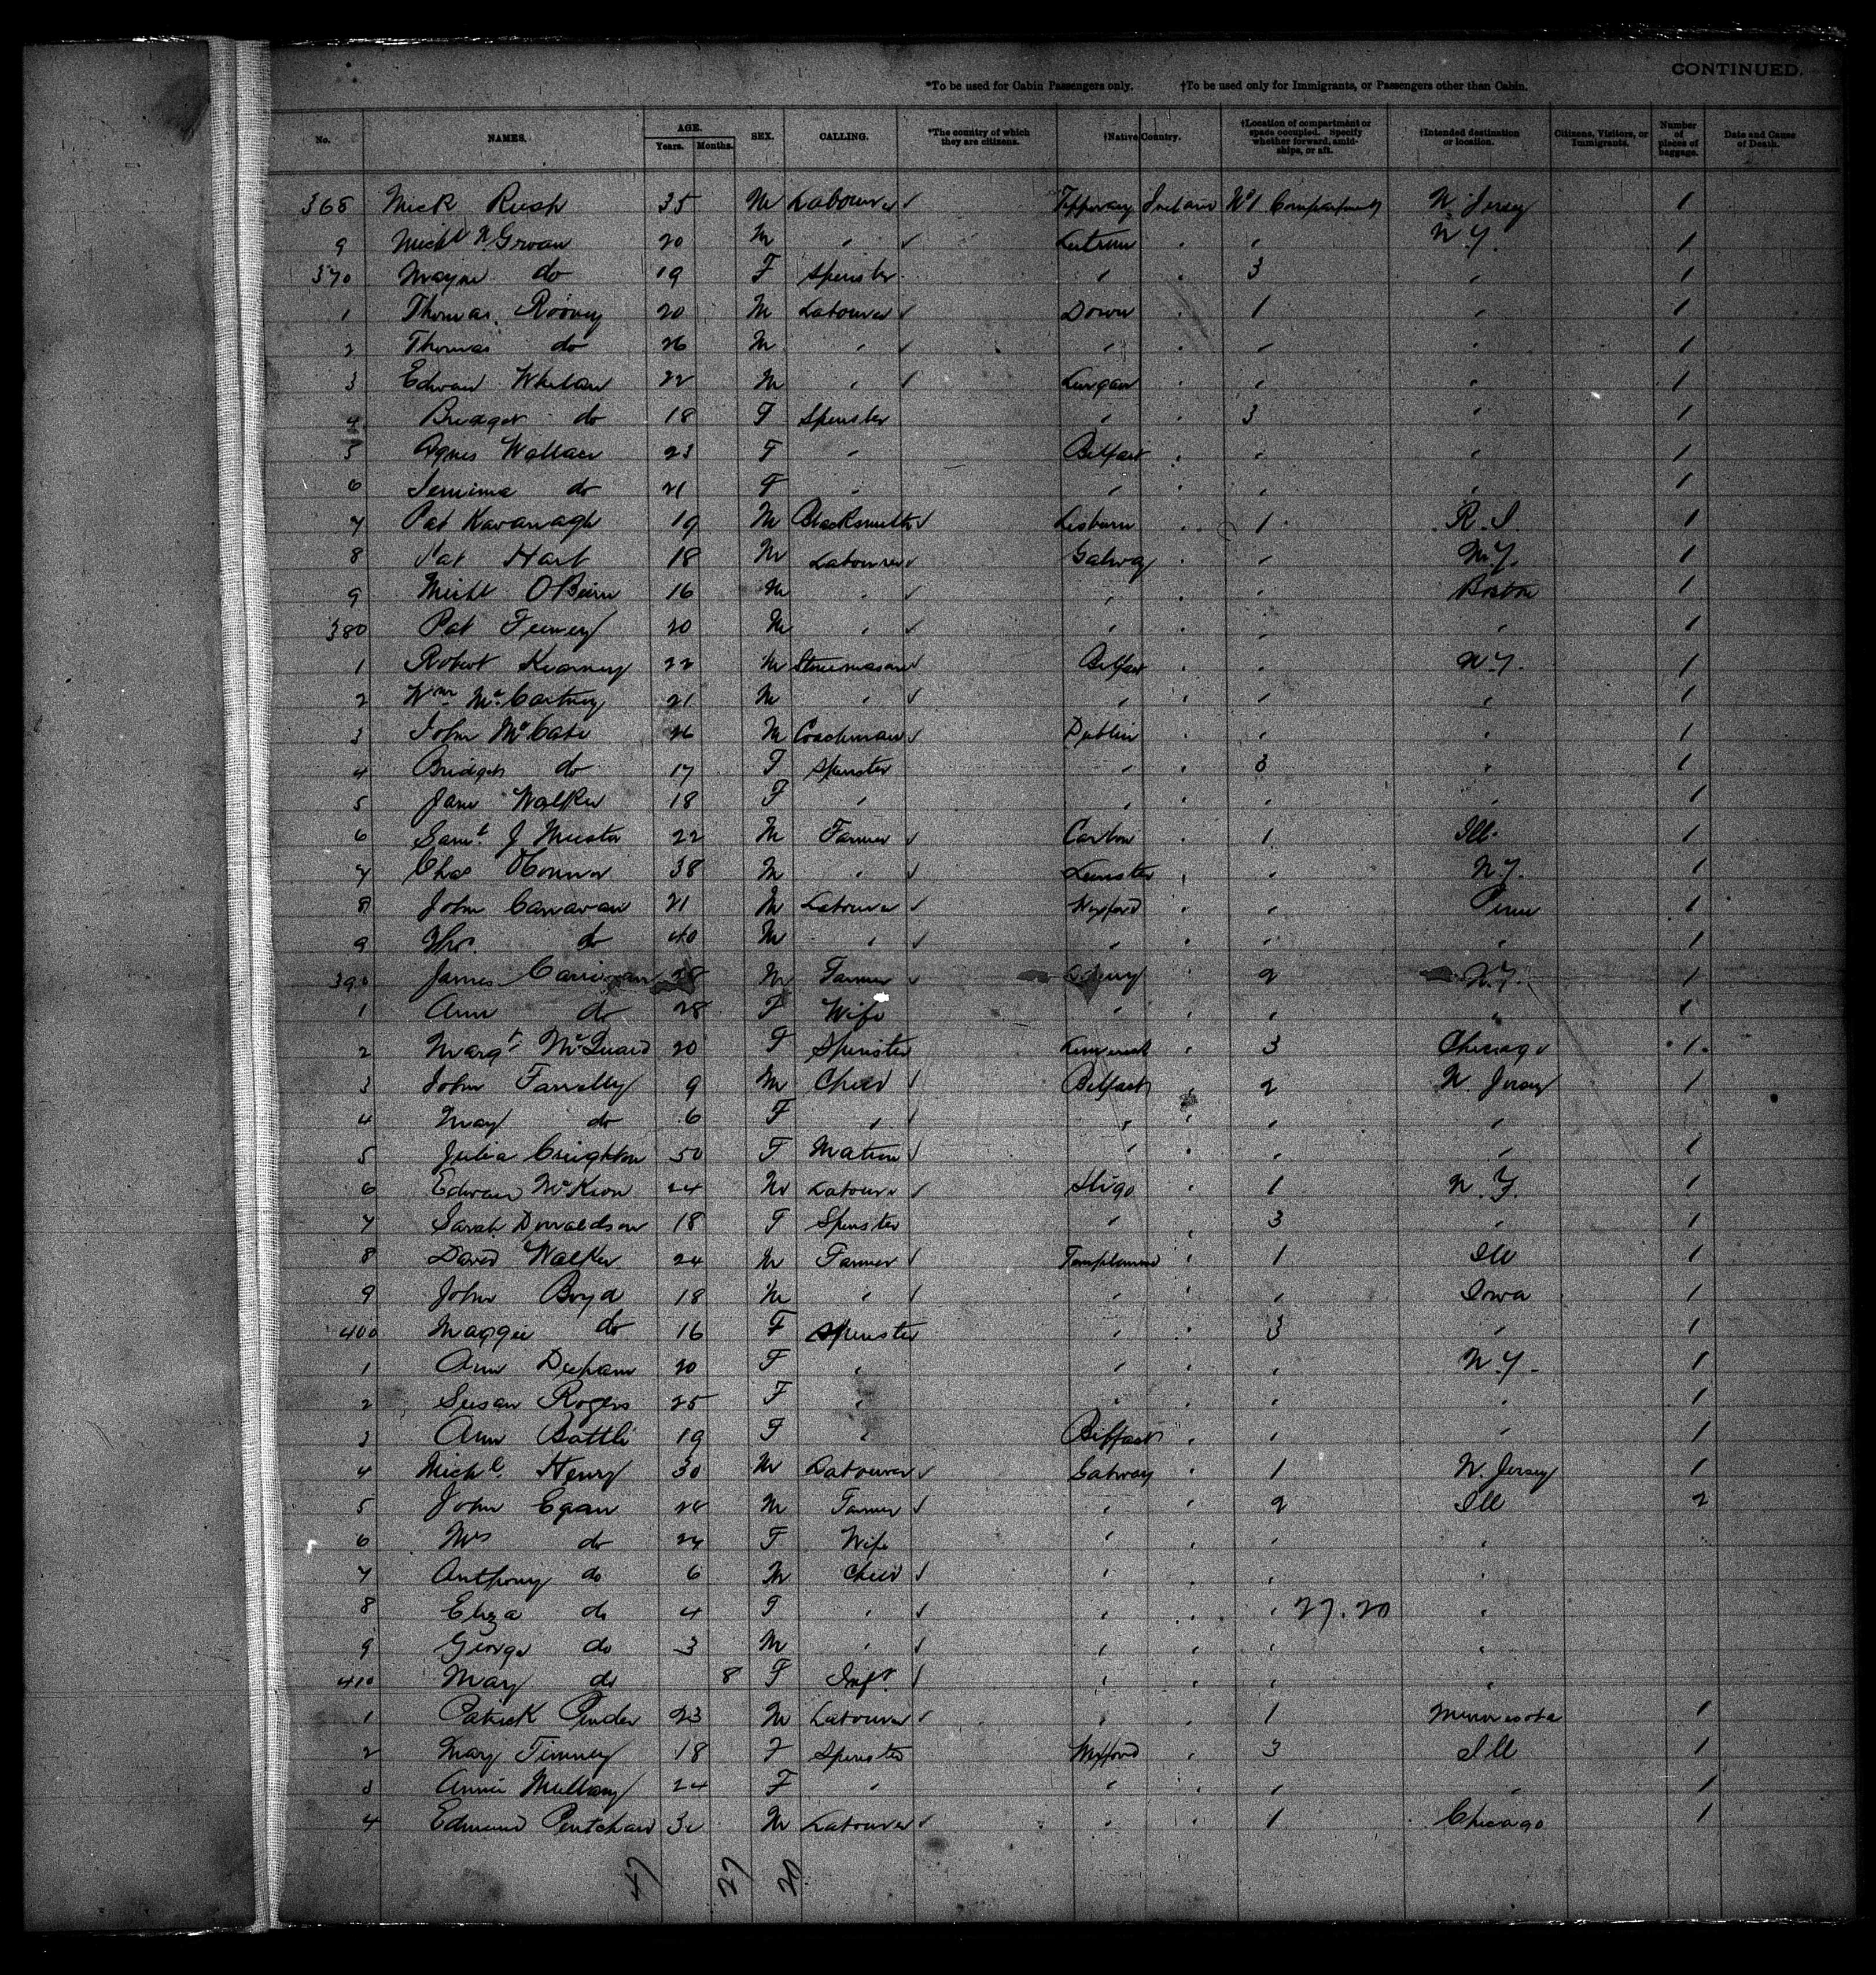 CONTINUED.
*To be used for Cabin Passengers only. †To be used only for Immigrants, or Passengers other than Cabin.
No. NAMES. AGE. Years. Months. SEX. CALLING. *The country of which they are citizens. †Native Country. †Location of compartment or space occupied. Specify whether forward, amidships, or aft. †Intended destination or location. Citizens, Visitors, or Immigrants. Number of pieces of baggage. Date and Cause of Death.
368 Mick Rush 35 M Labourer ✓ Tipperary Ireland No 1 Compartment N. Jersey 1
9 Michl 20 M " ✓ " " N.Y. 1
370 do 19 F Spinster " " 3 " 1
1 Thomas Rooney 20 M Labourer ✓ Down " 1 " 1
2 Thomas do 26 M " ✓ " " " " 1
3 Whelan 22 M " ✓ Lurgan " " " 1
4 Bridget do 18 F Spinster " " 3 " 1
5 Agnes Wallace 23 F " Belfast " " " 1
6 Jemima do 21 F " " " " " 1
7 Pat Kavanagh 19 M Blacksmith ✓ Lisburn " 1 R.I. 1
8 Pat Hart 18 M Labourer ✓ Galway " " N.Y. 1
9 Michl 16 M " ✓ " " " Boston 1
380 Pat 20 M " ✓ " " " " 1
1 Robert Kearney 22 M Stonemason ✓ Belfast " " N.Y. 1
2 Wm McCartney 21 M " ✓ " " " " 1
3 John McCabe 26 M Coachman ✓ Dublin " " " 1
4 Bridget do 17 F Spinster " " 3 " 1
5 Jane Walker 18 F " " " " " 1
6 Saml J. 22 M Farmer ✓ " 1 Ill. 1
7 Chas OConnor 38 M " ✓ Leinster " " N.Y. 1
8 John Canavan 21 M Labourer ✓ Wexford " " Penn 1
9 Thos do 40 M " ✓ " " " " 1
390 James 28 M Farmer ✓ " 2 N.Y. 1
1 Ann do 28 F Wife " " " " 1
2 Margt McQuaid 20 F Spinster Limerick " 3 Chicago 1
3 John Farrelly 9 M Child ✓ Belfast " 2 N. Jersey 1
4 May do 6 F " ✓ " " " "
5 Julia Creighton 50 F Matron ✓ " " " " 1
6 McKeon 24 M Labourer ✓ Sligo " 1 N.Y. 1
7 Sarah Donaldson 18 F Spinster " " 3 " 1
8 David Walker 24 M Farmer ✓ " 1 Ill 1
9 John Boyd 18 M " ✓ " " " Iowa 1
400 Maggie do 16 F Spinster " " 3 " 1
1 Ann 20 F " " " " N.Y. 1
2 Susan Rogers 25 F " " " " " 1
3 Ann Battle 19 F " Belfast " " " 1
4 Michl. Henry 30 M Labourer ✓ Galway " 1 N. Jersey 1
5 John Egan 28 M Farmer ✓ " " 2 Ill 2
6 Mrs do 24 F Wife " " " "
7 Anthony do 6 M Child ✓ " " " "
8 Eliza do 4 F " ✓ " " " 27.20 "
9 George do 3 M " ✓ " " " "
410 Mary do 8 F Inft. ✓ " " " "
1 Patrick Pender 23 M Labourer ✓ " " 1 Minnesota 1
2 Mary 18 F Spinster Wexford " 3 Ill 1
3 Annie Mullany 24 F " " " " " 1
4 Edmund M Labourer ✓ " " 1 Chicago 1
47 27 20